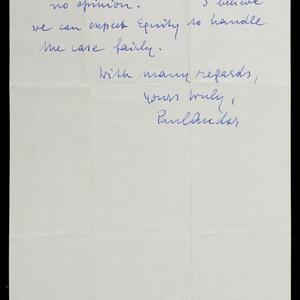 no opinion. I believe
we can expect Equity to handle
the case fairly.
With many regards,
Yours truly,
Paul Andor